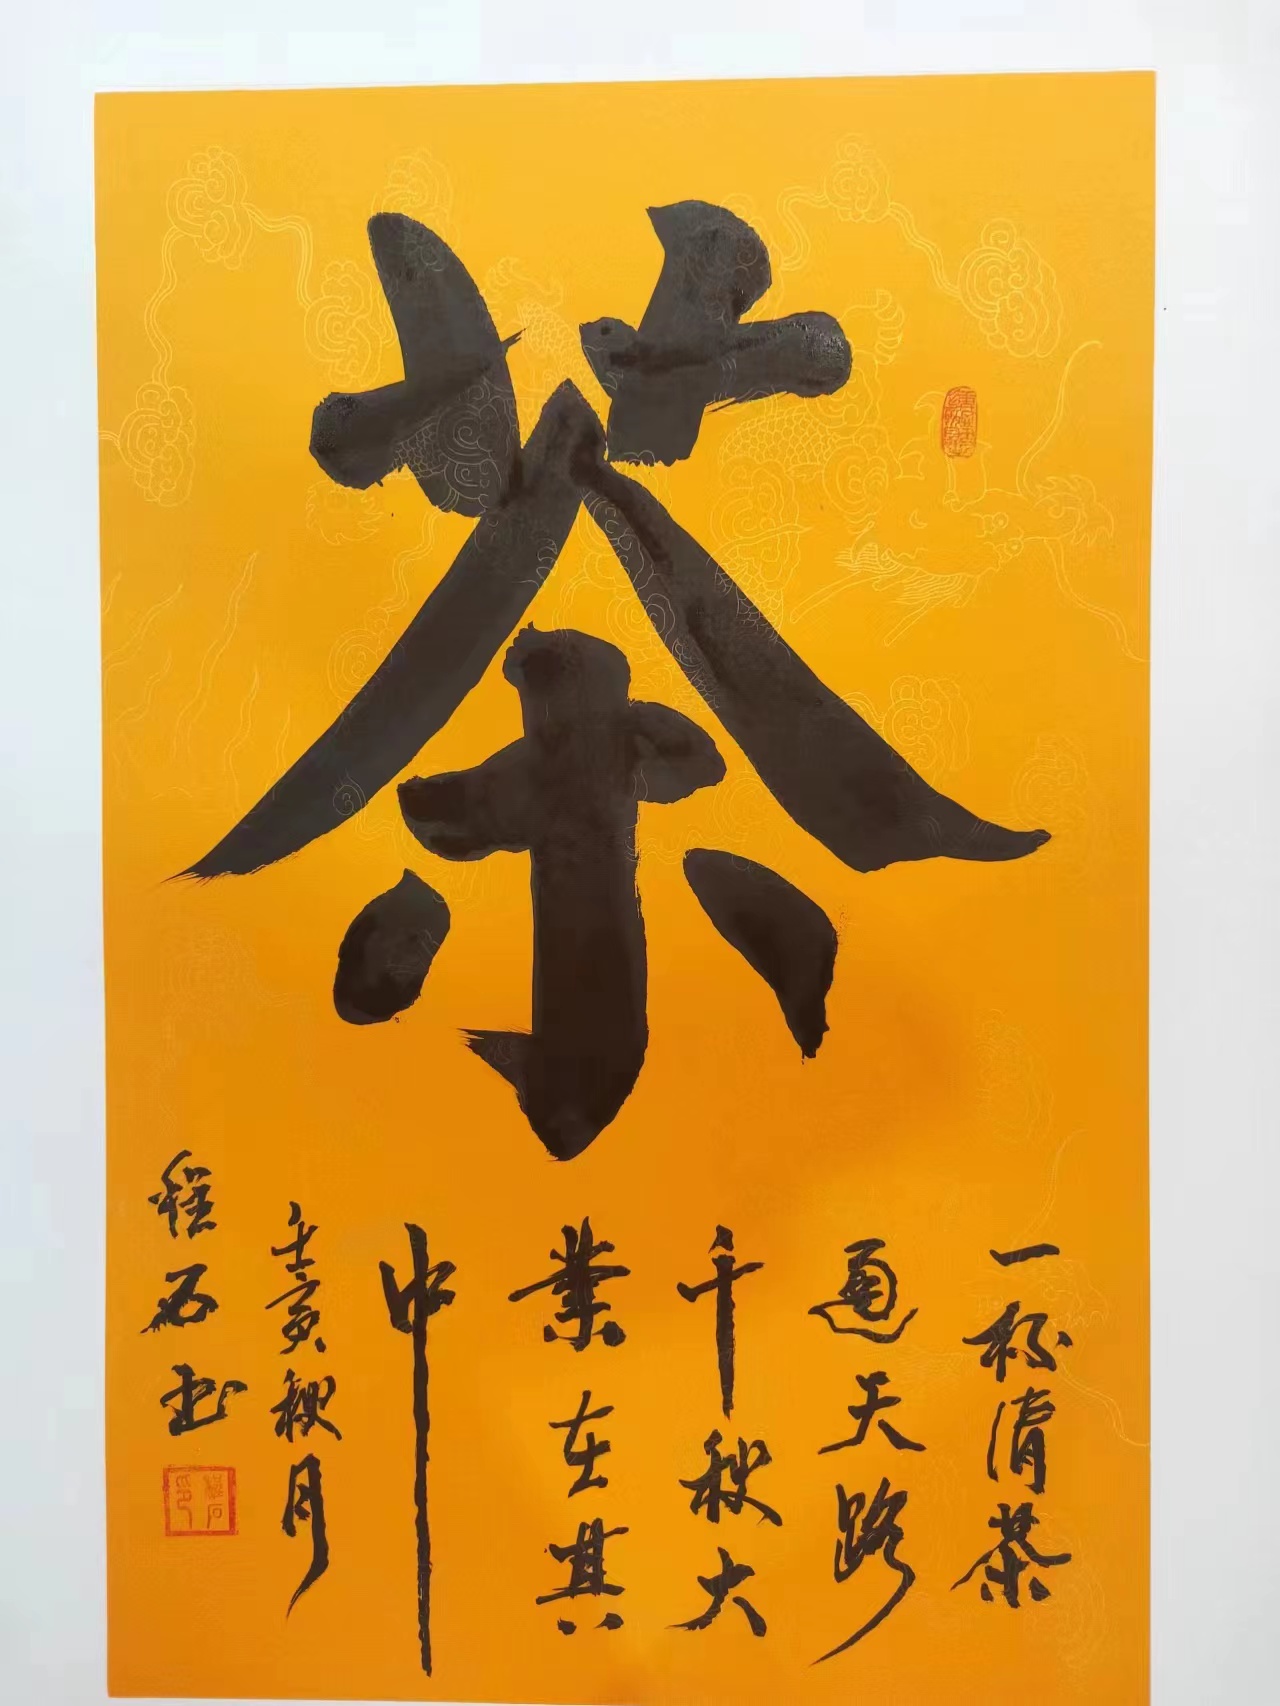 茶
一杯清茶
通天路
千秋大
業在其
中
壬寅秋月
程石书